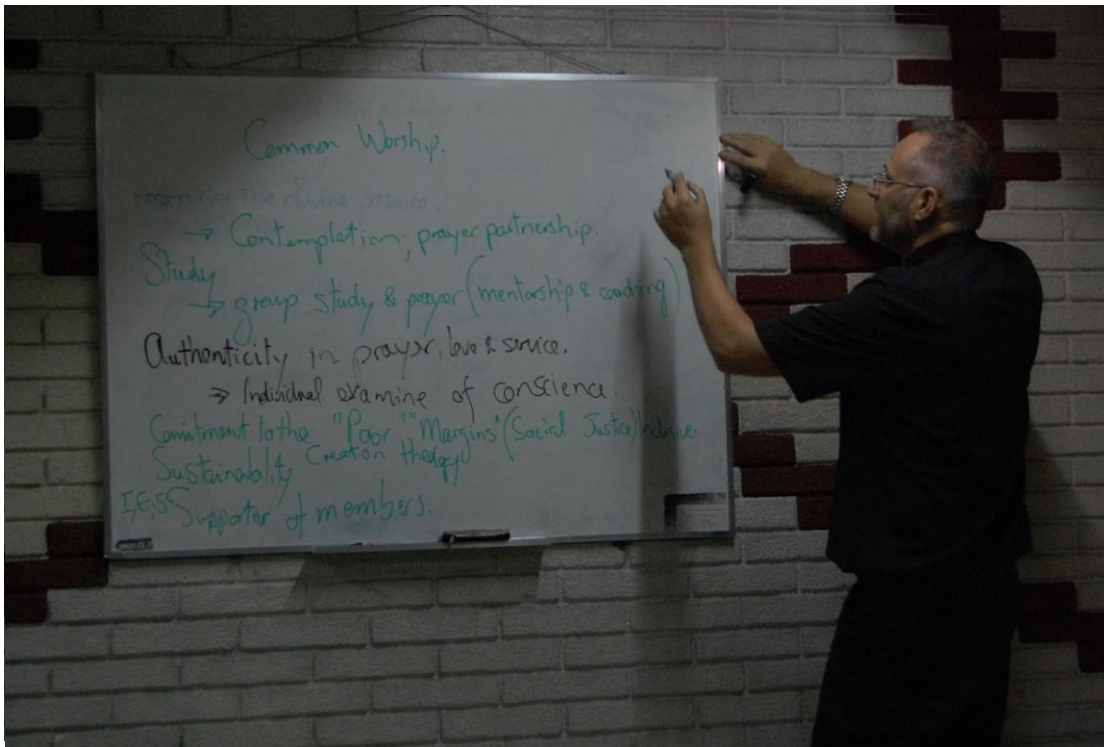 Common Worship.
the divine
→ Contemplation; prayer partnership.
Study
→ group study & prayer (mentorship & coaching)
Authenticity in prayer, love & service.
⇒ Individual examine of conscience.
Comitment to the "Poor" "Margins" (Social Justice) Inclusive.
Sustainability Creation theology
I,E,S Supporter of members.